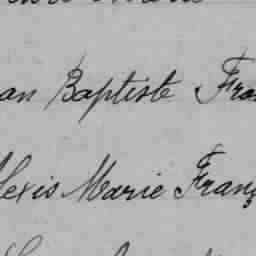 an Baptiste Fra
lexis Marie Franç